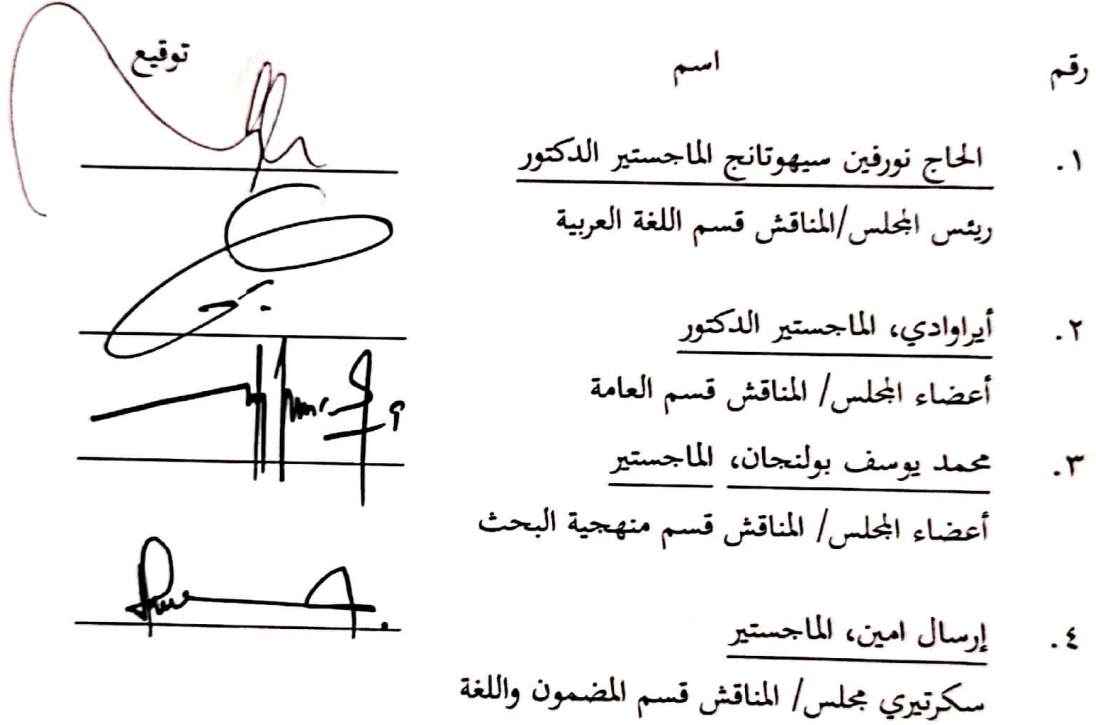 رقم اسم توقيع
١. الحاج نورفين سيهوتانج الماجستير الدكتور
ريئس المجلس/المناقش قسم اللغة العربية
٢. أيراوادي، الماجستير الدكتور
أعضاء المجلس/ المناقش قسم العامة
٣. محمد يوسف بولنجان، الماجستير
أعضاء المجلس/ المناقش قسم منهجية البحث
٤. إرسال امين، الماجستير
سكرتيري مجلس/ المناقش قسم المضمون واللغة